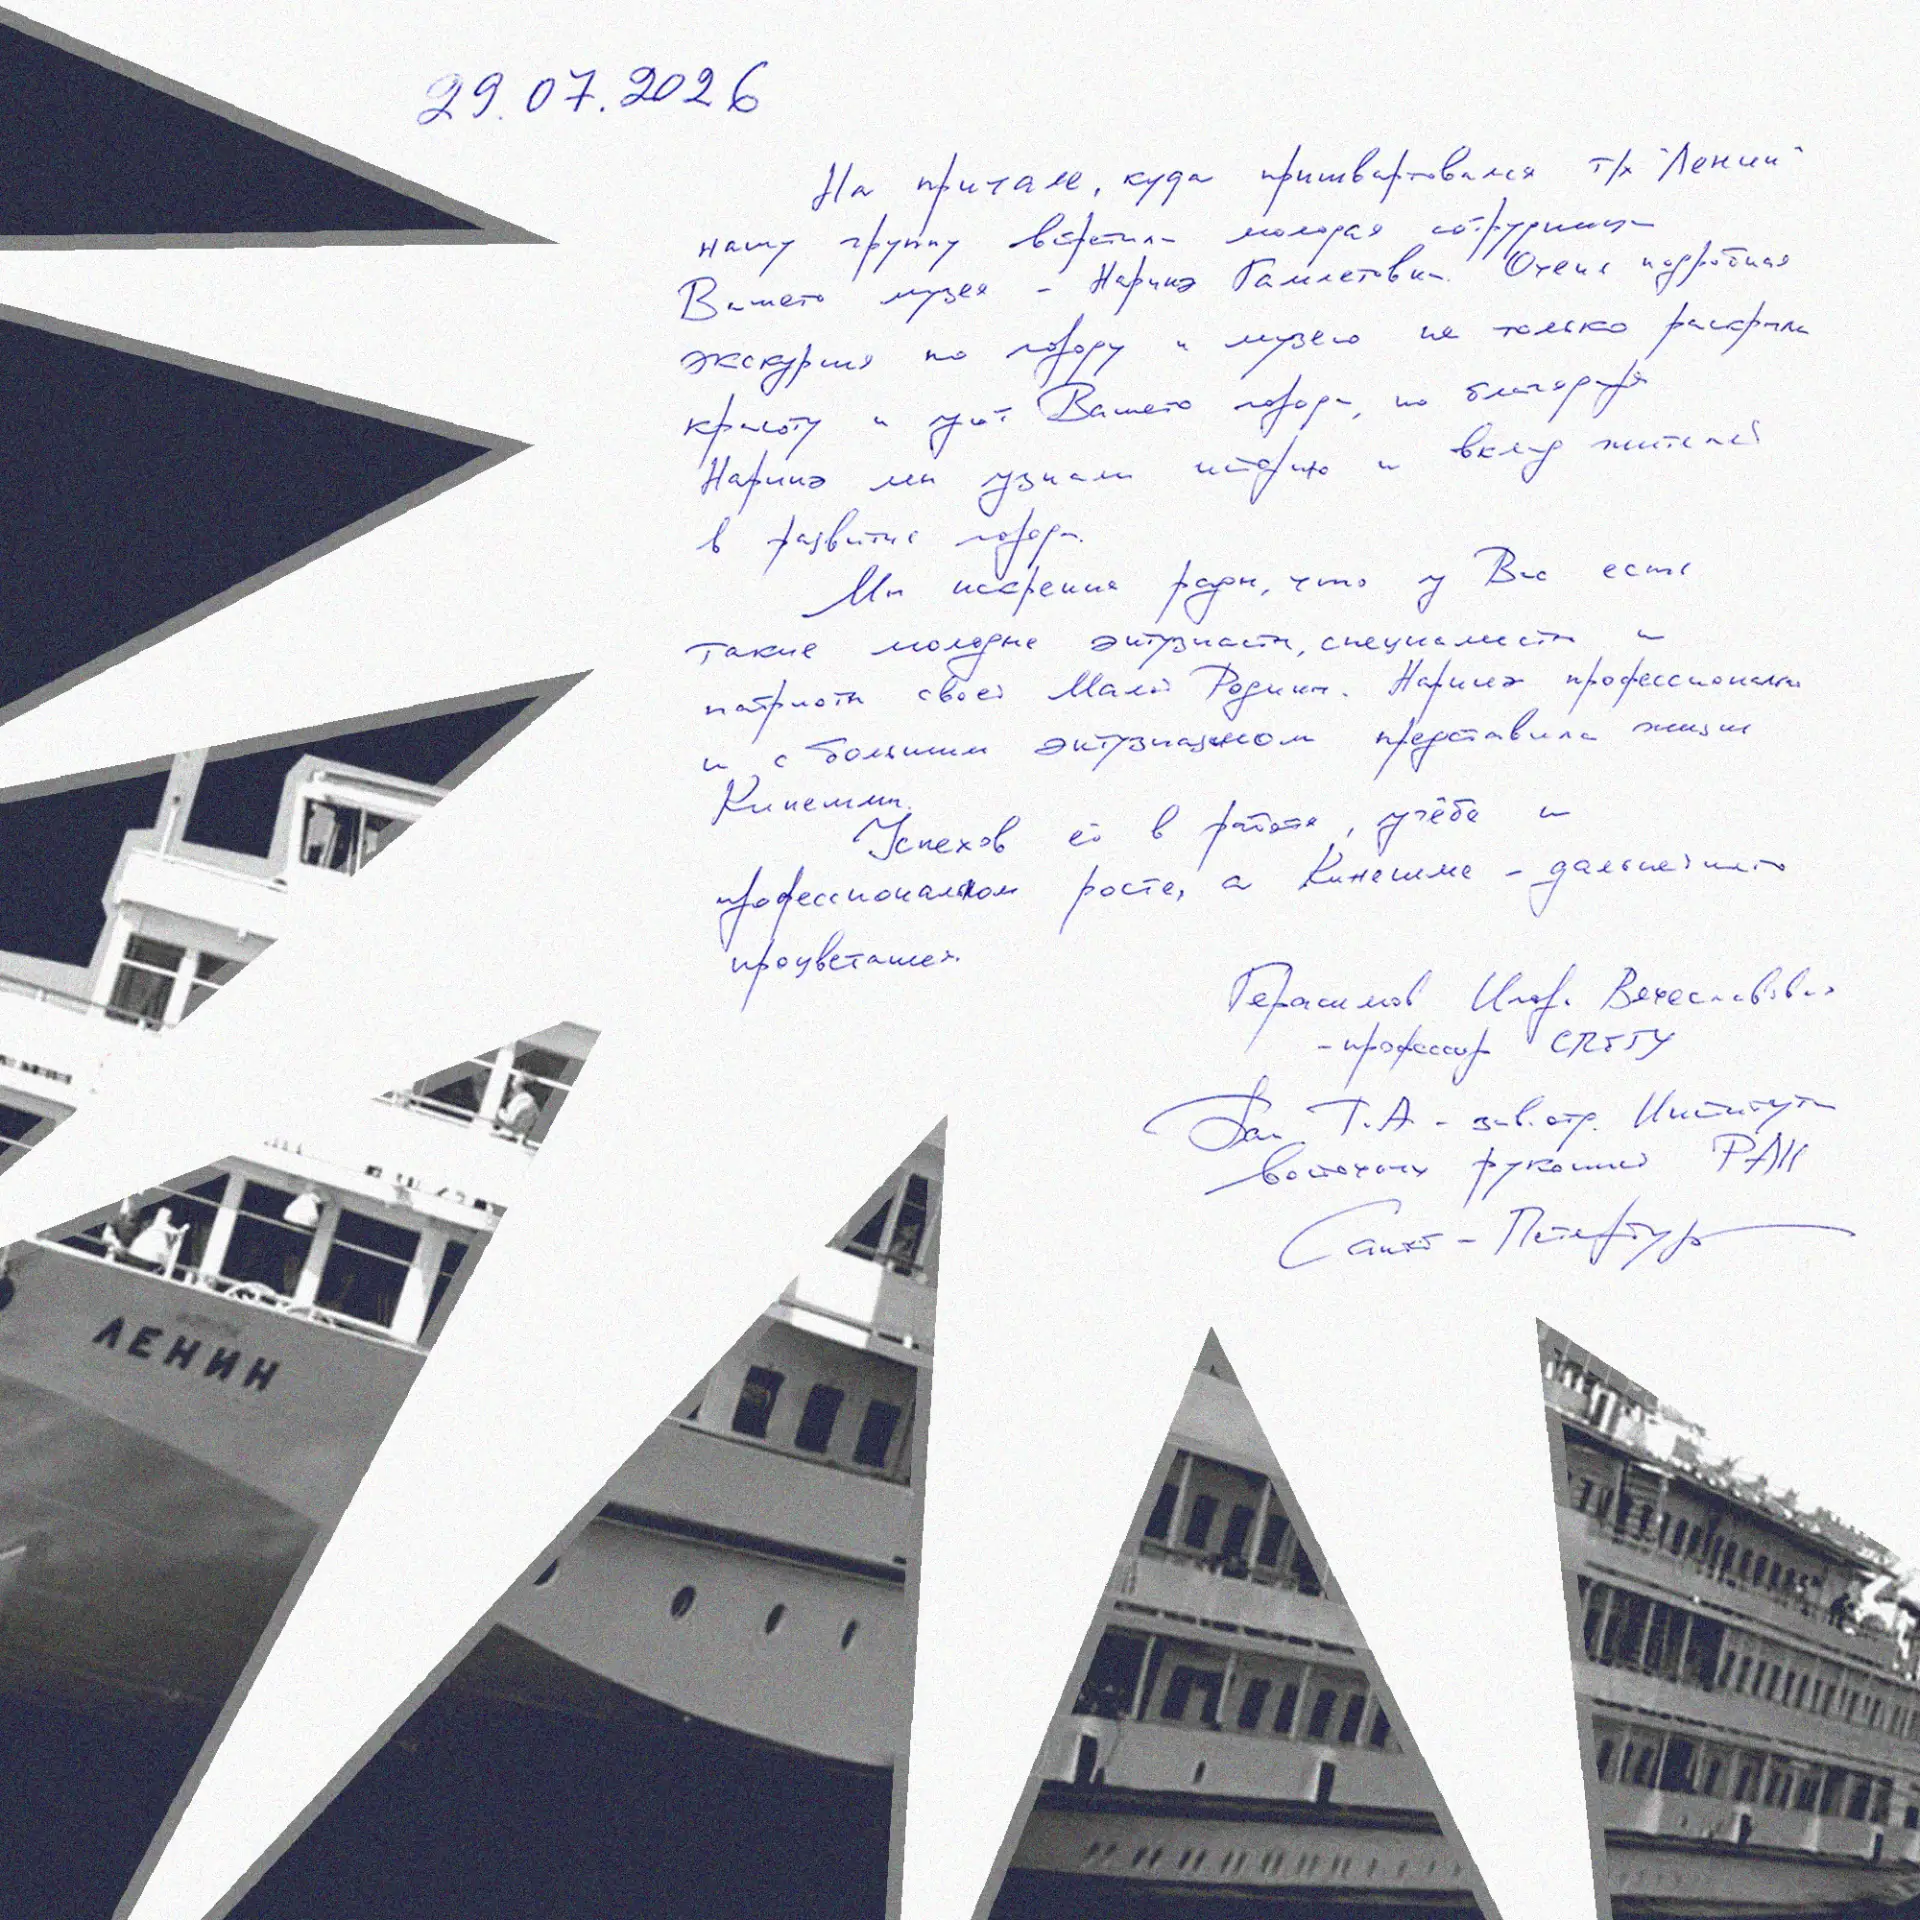 29.07.2026
На причале, куда пришвартовался т/х "Ленин"
нашу группу встретила молодая сотрудница
Вашего музея - Наринэ Гамлетовна. Очень подробная
экскурсия по городу и музею не только раскрыла
красоту и уют Вашего города, но благодаря
Наринэ мы узнали историю и вклад жителей
в развитие города.
Мы искренне рады, что у Вас есть
такие молодые энтузиасты, специалисты и
патриоты своей Малой Родины. Наринэ профессионально
и с большим энтузиазмом представила жизнь
Кинешмы.
Успехов ей в работе, учёбе и
профессиональном росте, а Кинешме - дальнейшего
процветания.
Герасимов Игорь Вячеславович
- профессор
Т.А. - зав. отд. Института
восточных рукописей РАН
Санкт-Петербург
ЛЕНИН